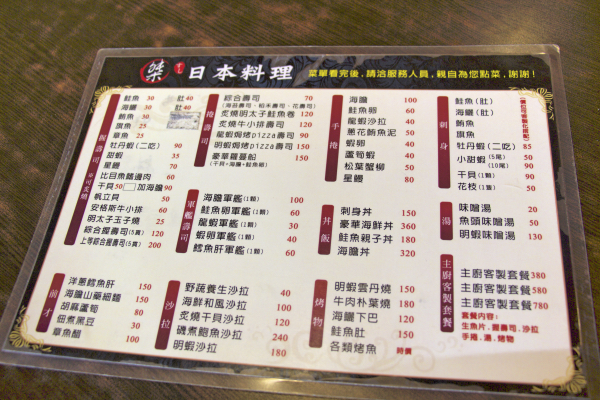 桀 すし 日本料理
菜單看完後，請洽服務人員，親自為您點菜，謝謝！
握壽司
鮭魚 30 肚 40
海鱺 30 肚 40
鮪魚 30
旗魚 25
章魚 25
牡丹蝦(二吃) 90
甜蝦 35
星鰻 70
比目魚鰭邊肉 60
干貝 50 加海膽 90
帆立貝 50
安格斯牛小排 60
明太子玉子燒 25
綜合握壽司(5貫) 120
上等綜合握壽司(5貫) 200
捲壽司
綜合壽司 70
(海苔壽司、稻禾壽司、花壽司)
炙燒明太子鮭魚卷 120
炙燒牛小排壽司 120
龍蝦焗烤pizza壽司 90
明蝦焗烤pizza壽司 150
豪華蘿蔓船 150
(干貝、海鱺、鮭魚卵)
手捲
海膽 100
鮭魚卵 60
龍蝦沙拉 40
蔥花鮪魚泥 50
蝦卵 40
蘆筍蝦 40
松葉蟹柳 50
星鰻 80
刺身
鮭魚(肚)
海鱺(肚)
鮪魚
旗魚
牡丹蝦(二吃) 85
小甜蝦 (5尾) 50
(10尾) 90
干貝(1顆) 90
花枝(1盤) 50
軍艦壽司
海膽軍艦(1顆) 100
鮭魚卵軍艦(1顆) 60
龍蝦軍艦(1顆) 30
蝦卵軍艦(1顆) 40
鱈魚肝軍艦(1顆) 60
丼飯
刺身丼 150
豪華海鮮丼 360
鮭魚親子丼 180
海膽丼 320
湯
味噌湯 20
魚頭味噌湯 50
明蝦味噌湯 130
前才
洋蔥鱈魚肝 150
海膽山藥細麵 150
胡麻蘆筍 80
佃煮黑豆 30
章魚醋 100
沙拉
野蔬養生沙拉 40
海鮮和風沙拉 100
炙燒干貝沙拉 120
磯煮鮑魚沙拉 240
明蝦沙拉 180
烤物
明蝦雲丹燒 150
牛肉朴葉燒 180
海鱺下巴 120
鮭魚肚 150
各類烤魚 時價
主廚客製套餐
主廚客製套餐 380
主廚客製套餐 580
主廚客製套餐 780
套餐內容：
生魚片．握壽司．沙拉
手捲．湯．烤物